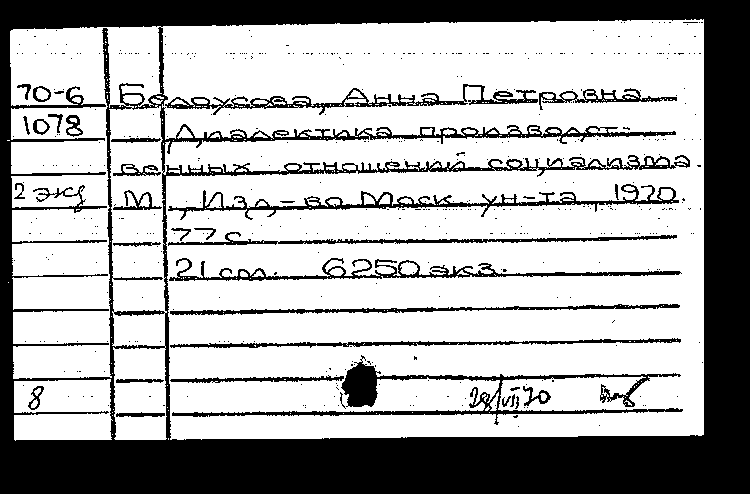 70-6 Белоусова, Анна Петровна.
1078 Диалектика производст-
венных отношений социализма.
2 экз М., Изд-во Моск. ун-та, 1970.
77 с.
21 см. 6250 экз.
8 28/VII 70